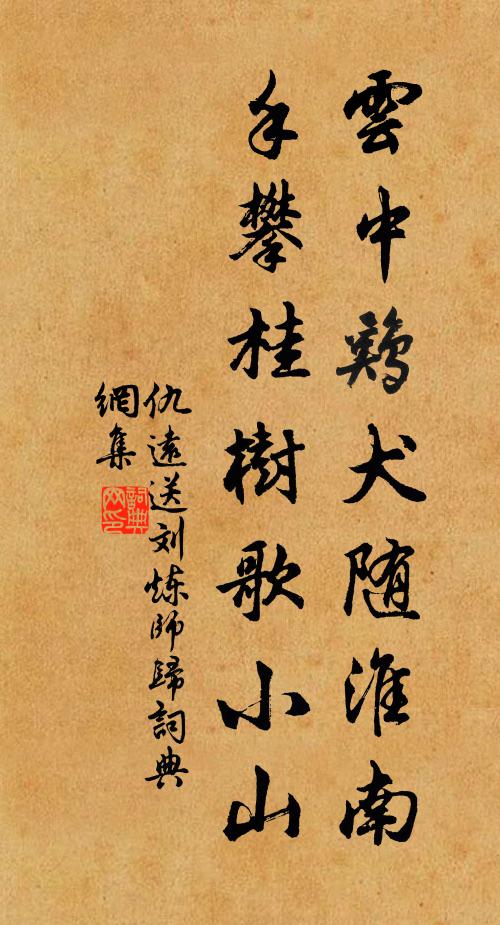 雲中鷄犬随淮南
手攀桂樹歌小山
仇遠送刘炼師歸詞典
網集
詞典網印